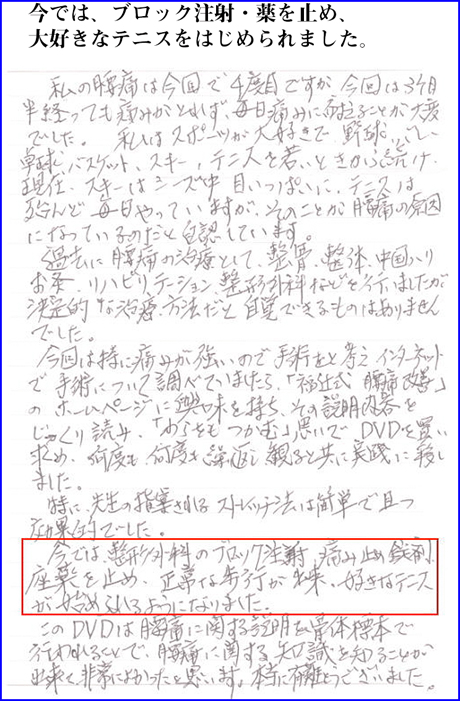 今では、ブロック注射・薬を止め、
大好きなテニスをはじめられました。
私の腰痛は今回で4度目ですが、今回は3ヶ月
半経っても痛みがとれず、毎日痛みに耐えることが大変
でした。 私はスポーツが大好きで、野球、
卓球、バスケット、スキー、テニスを若いときから続け、
現在、スキーはシーズン中目いっぱいに、テニスは
殆んど毎日やっていますが、そのことが腰痛の原因
になっているのだと自認しています。
過去に腰痛の治療として、整骨、整体、中国ハリ
お灸、リハビリテーション、整形外科などを行いましたが
決定的な治療方法だと自覚できるものはありません
でした。
今回は特に痛みが強いので手術をと考えインターネット
で手術について調べていましたら、「福辻式 腰痛改善」
のホームページに興味を持ち、その説明内容を
じっくり読み、「わらをもつかむ」思いでDVDを買い
求め、何度も何度も繰返し観ると共に実践に移し
ました。
特に、先生の指導されるストレッチ法は簡単で且つ
効果的でした。
今では、整形外科のブロック注射、痛み止め錠剤、
座薬を止め、正常な歩行が出来、好きなテニス
が始められるようになりました。
このDVDは腰痛に関する説明を骨体標本で
行われることで、腰痛に関する知識を知ることが
出来て非常によかったと思います。本当に有難とうございました。